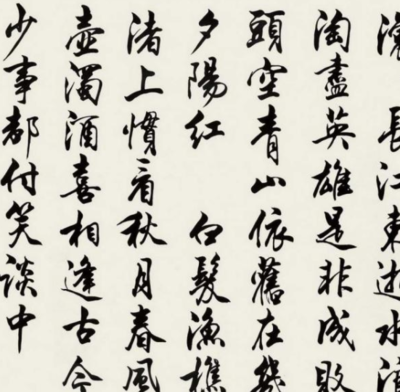 滾 長江東逝水浪
淘盡英雄是非成敗
頭空青山依舊在幾
夕陽紅 白髮漁樵
渚上慣看秋月春風
壺濁酒喜相逢古今
少事都付笑談中